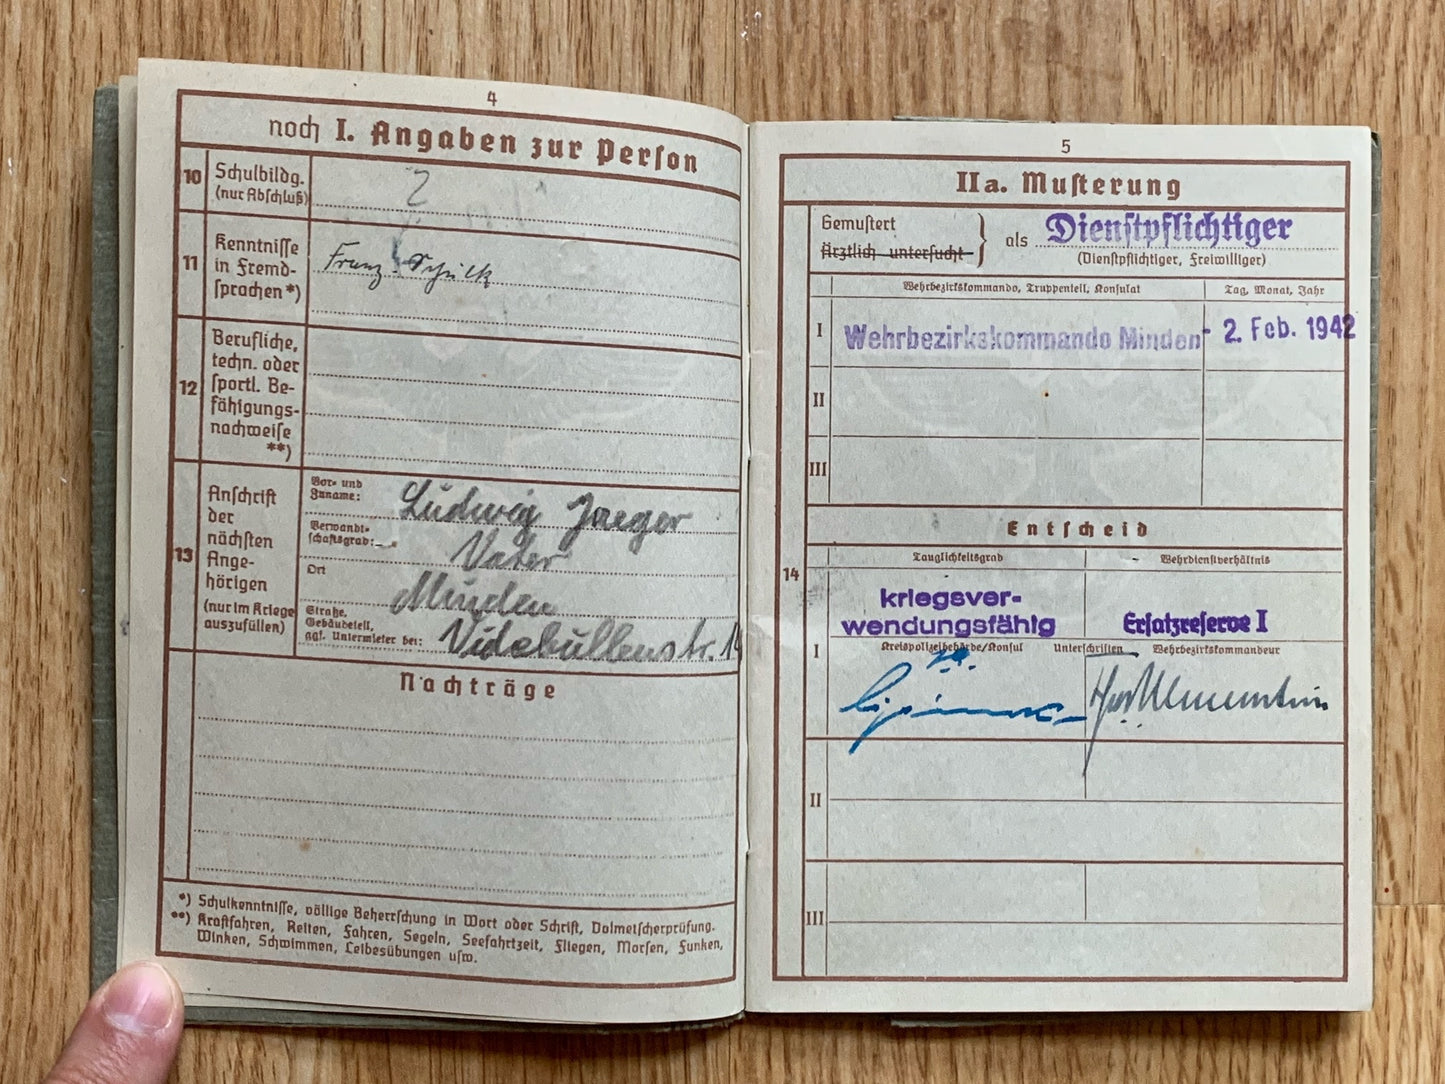 4
noch I. Angaben zur Person
10
Schulbildg.
(nur Abschluß)
11
Kenntnisse
in Fremd-
sprachen *)
Franz.
12
Berufliche,
techn. oder
sportl. Be-
fähigungs-
nachweise
**)
13
Anschrift
der
nächsten
Ange-
hörigen
(nur im Kriege
auszufüllen)
Vor- und
Zuname:
Ludwig Jaeger
Verwandt-
schaftsgrad:
Vater
Ort
Minden
Straße,
Gebäudeteil,
ggf. Untermieter bei:
Videbullenstr. 14
Nachträge
*) Schulkenntnisse, völlige Beherrschung in Wort oder Schrift, Dolmetscherprüfung.
**) Kraftfahren, Reiten, Fahren, Segeln, Seefahrtzeit, Fliegen, Morsen, Funken,
Winken, Schwimmen, Leibesübungen usw.
5
IIa. Musterung
Gemustert
Ärztlich untersucht
als
Dienstpflichtiger
(Dienstpflichtiger, Freiwilliger)
Wehrbezirkskommando, Truppenteil, Konsulat
Tag, Monat, Jahr
I
Wehrbezirkskommando Minden
- 2. Feb. 1942
II
III
Entscheid
14
Tauglichkeitsgrad
Wehrdienstverhältnis
I
kriegsver-
wendungsfähig
Ersatzreserve I
Kreispolizeibehörde/Konsul
Unterschriften
Wehrbezirkskommandeur
II
III